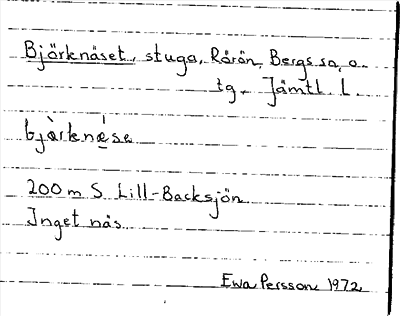 Björknäset, stuga, Rörön, Bergs sn, o.
tg. Jämtl. l.
bjàrknǽse
200 m S Lill-Backsjön
Inget näs
Ewa Persson 1972